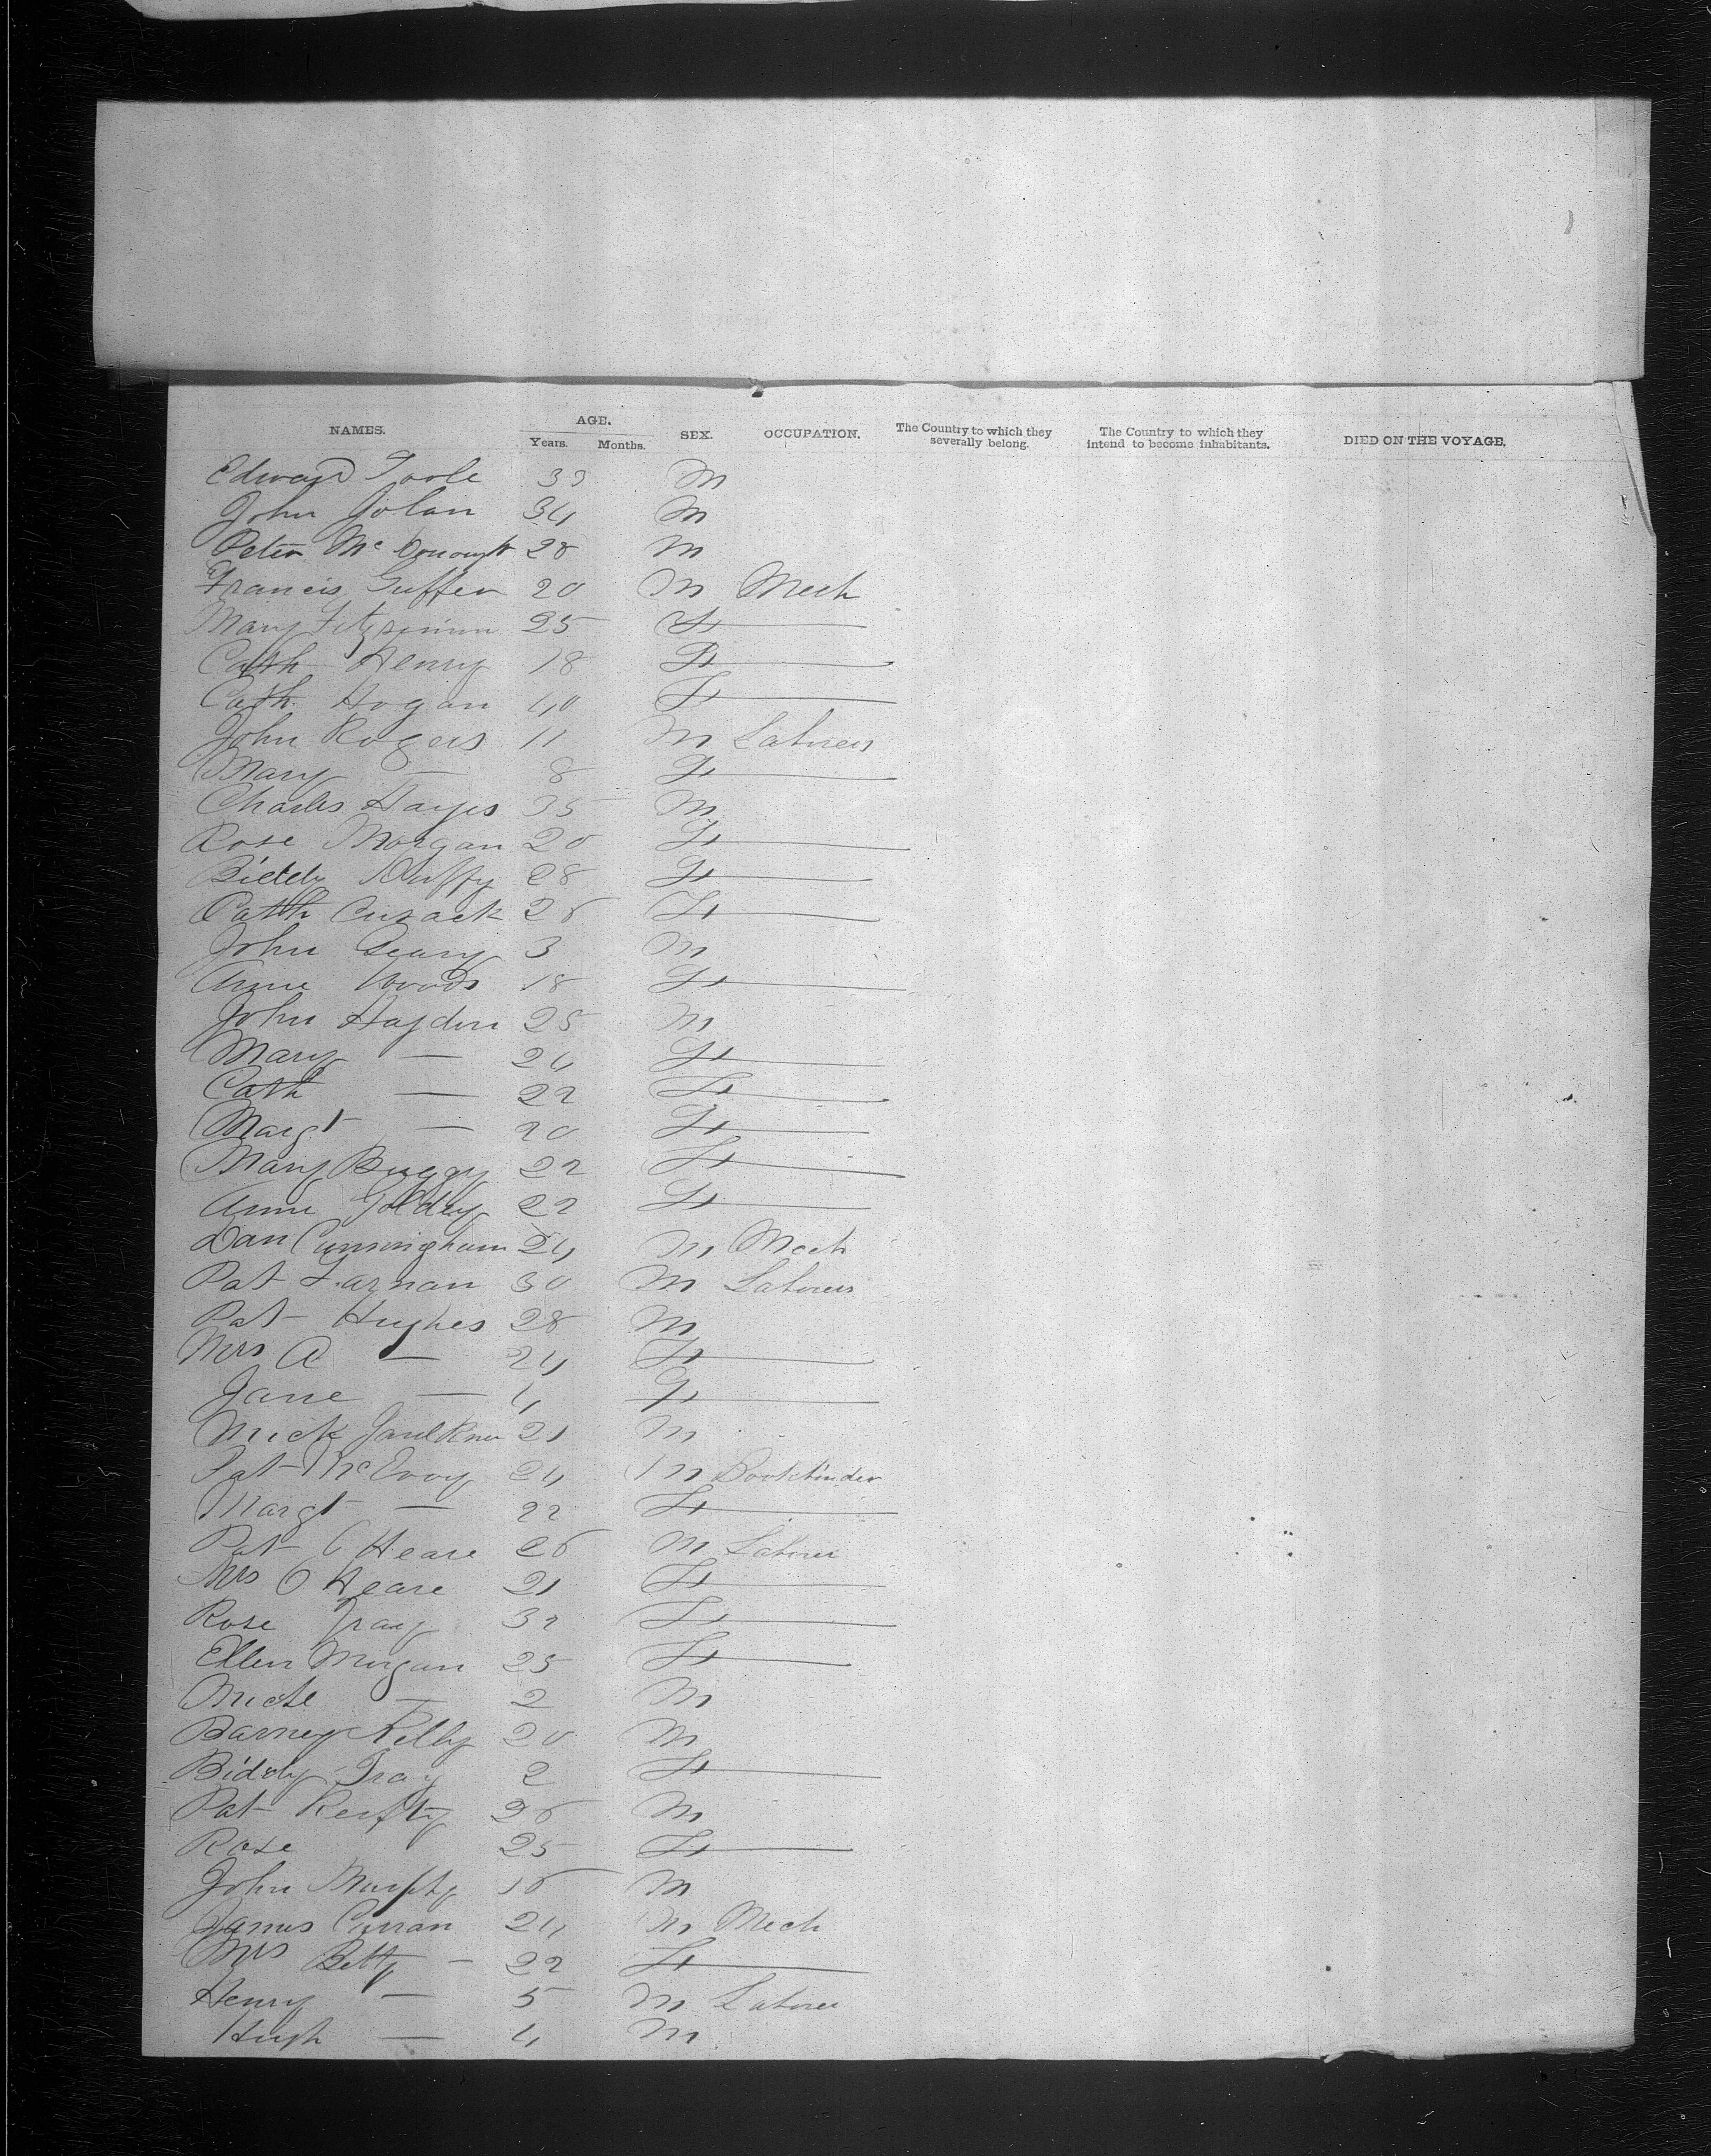 NAMES. AGE. Years. Months. SEX. OCCUPATION. The Country to which they severally belong. The Country to which they intend to become inhabitants. DIED ON THE VOYAGE.
Edward Toole 33 M
John Jolan 34 M
Peter Mc Donough 28 M
Francis Guffen 20 M Mech
Mary Fitzsimon 25 F
Cath Henry 18 F
Cath Hogan 40 F
John Rogers 11 M Laborer
Mary — 8 F
Charles Hayes 35 M
Rose Morgan 20 F
Biddy Duffy 28 F
Cath Cusack 26 F
John Geary 3 M
Anne Woods 18 F
John Hayden 25 M
Mary — 24 F
Cath — 22 F
Margt — 20 F
Mary Buggy 22 F
Anne 22 F
Dan Cunningham 24 M Mech
Pat Farnan 30 M Laborer
Pat Hughes 28 M
Mrs A — 24 F
Jane — 4 F
Mick Faulkner 21 M
Pat McEvoy 24 M Bookbinder
Margt — 22 F
Pat O Heare 26 M Laborer
Mrs O Heare 21 F
Rose Gray 32 F
Ellen Morgan 25 F
Mick — 2 M
Barney Kelly 20 M
Biddy Gray 2 F
Pat 26 M
Rose 25 F
John Murphy 16 M
James Curran 24 M Mech
Mrs Betty — 22 F
Henry — 5 M Laborer
Hugh — 4 M